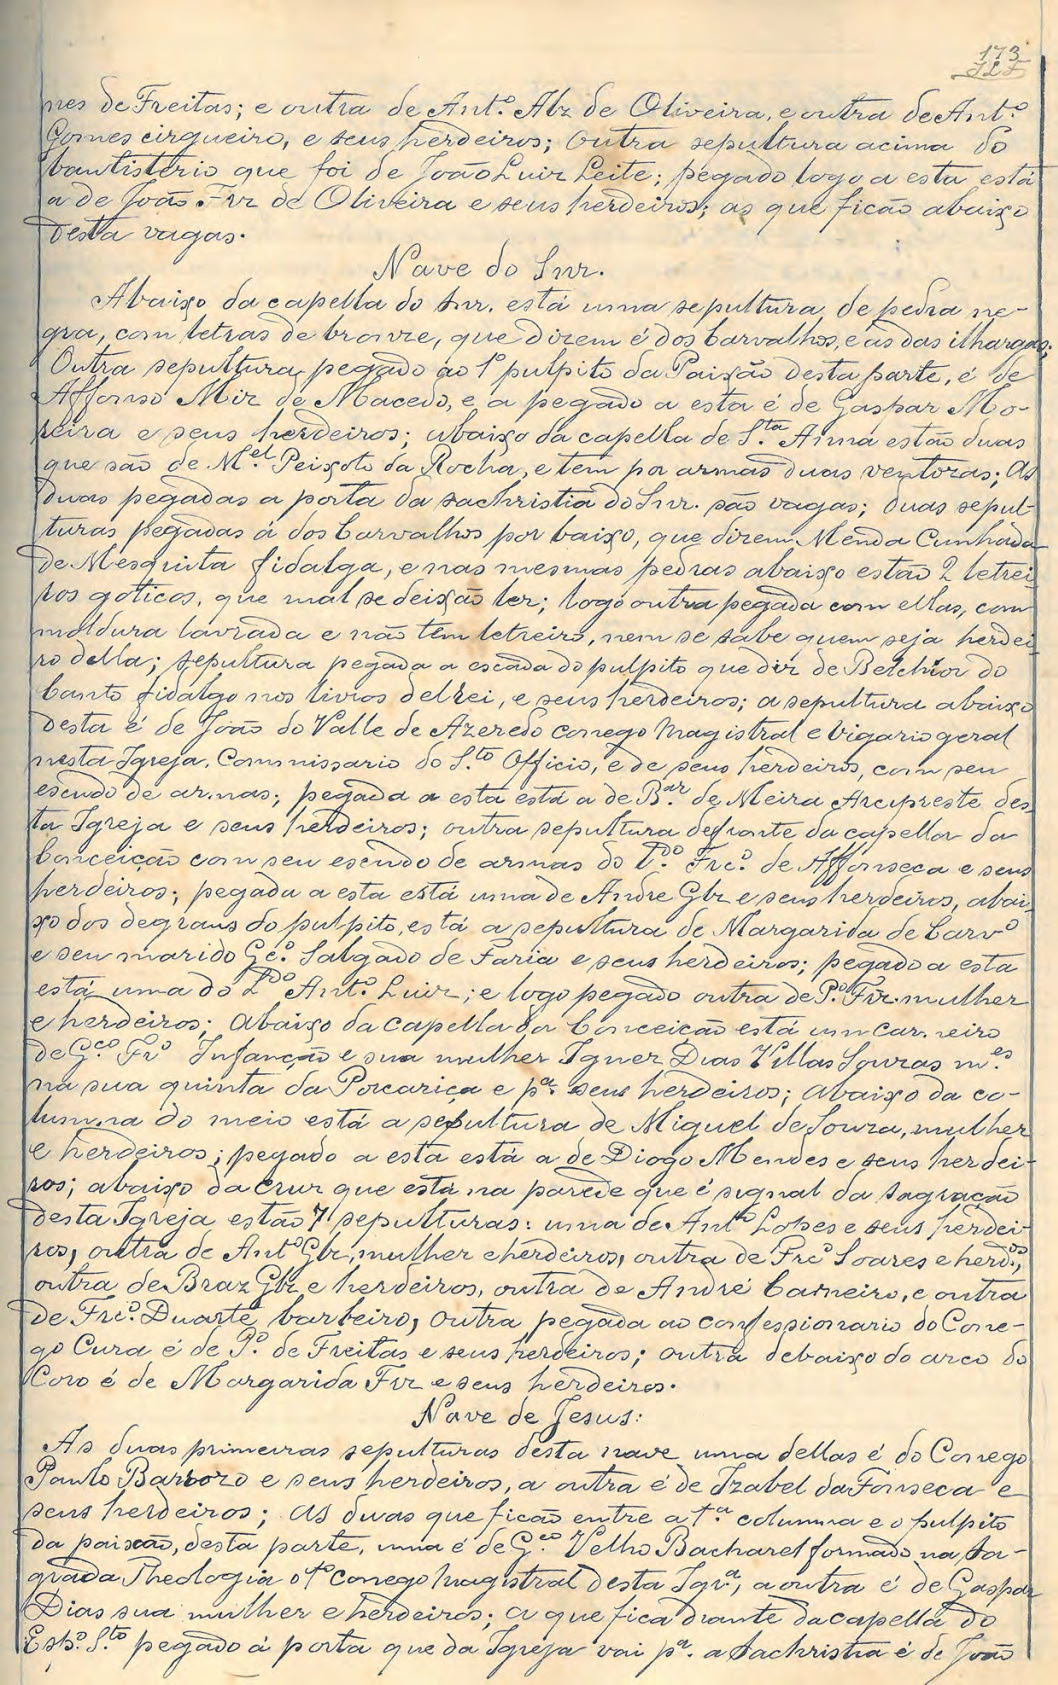 173
nes de Freitas; e outra de Ant.º Alz de Oliveira, e outra de Ant.º
Gomes cirgueiro, e seus herdeiros; outra sepultura acima do
bautisterio que foi de João Luiz Leite; pegado logo a esta está
a de João Frz de Oliveira e seus herdeiros; as que ficão abaixo
desta vagas.
Nave do Snr.
Abaixo da capella do Snr. está uma sepultura de pedra ne-
gra, com letras de bronze, que dizem é dos Carvalhos, e as das ilhargas;
Outra sepultura pegado ao 1º pulpito da Paixão desta parte, é de
Affonso Miz de Macedo, e a pegado a esta é de Gaspar Mo-
reira e seus herdeiros; abaixo da capella de S.ta Anna estão duas
que são de M.el Peixoto da Rocha, e tem por armas duas ventozas; As
duas pegadas a porta da sachristia do Snr. são vagas; duas sepul-
turas pegadas á dos Carvalhos por baixo, que dizem Menda Cunhada
de Mesquita fidalga, e nas mesmas pedras abaixo estão 2 letrei-
ros goticos, que mal se deixão ler; logo outra pegada com ellas, com
moldura lavrada e não tem letreiro, nem se sabe quem seja herdei-
ro della; sepultura pegada a escada do pulpito que diz de Belchior do
Canto fidalgo nos livros delrei, e seus herdeiros; a sepultura abaixo
desta é de João do Valle de Azeredo conego Magistral e Vigario geral
nesta Igreja, Commissario do S.to Officio, e de seus herdeiros, com seu
escudo de armas; pegada a esta está a de B.ar de Meira Arcipreste des-
ta Igreja e seus herdeiros; outra sepultura defronte da capella da
Conceição com seu escudo de armas do L.do Frc.º de Affonseca e seus
herdeiros; pegada a esta está uma de Andre Glz e seus herdeiros, abai-
xo dos degraus do pulpito, está a sepultura de Margarida de Carv.º
e seu marido Gc.º Salgado de Faria e seus herdeiros; pegado a esta
está uma do L.do Ant.º Luiz; e logo pegado outra de P.º Frz. mulher
e herdeiros; abaixo da capella da Conceição está um carneiro
de G.co Frº Infanção e sua mulher Ignez Dias Villas Souzas m.es
na sua quinta da Porcariça e p.ª seus herdeiros; abaixo da co-
lumna do meio está a sepultura de Miguel de Souza, mulher
e herdeiros; pegado a esta está a de Diogo Mendes e seus herdei-
ros; abaixo da cruz que está na parede que é signal da sagração
desta Igreja estão 7 sepulturas: uma de Antº Lopes e seus herdei-
ros, outra de Antº Glz, mulher e herdeiros, outra de Frcº Soares e herd.os,
outra de Braz Glz e herdeiros, outra de André Carneiro, e outra
de Frc.º Duarte barbeiro, outra pegada ao confessionario do Cone-
go Cura é de P.º de Freitas e seus herdeiros; outra debaixo do arco do
Coro é de Margarida Frz e seus herdeiros.
Nave de Jesus:
As duas primeiras sepulturas desta nave uma dellas é do Conego
Paulo Barrozo e seus herdeiros, a outra é de Izabel da Fonseca e
seus herdeiros; As duas que ficão entre a 1.ª columna e o pulpito
da paixão, desta parte, uma é de G.co Velho Bacharel formado na Sa-
grada Theologia o 1º conego Magistral desta Igr.ª, a outra é de Gaspar
Dias sua mulher e herdeiros; a que fica diante da capella do
Esp.º S.to pegado á porta que da Igreja vai p.ª a Sachristia é de João